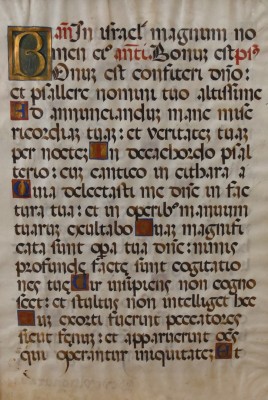 añ In israel magnum no
men ei9 añti. Bonuz est ps
Bonuz est confiteri dño:
et psallere nomini tuo altissime
Ad annunciandum mane misē
ricordiaz tuaz: et veritatez tuaz
per noctez In decachordo psal
terio: cuz cantico in cithara
Quia delectasti me dñe in fac
tura tua: et in operib9 manuum
tuaruz exultabo Quaz magnifi
cata sunt opa tua dñe: nimis
profunde facte sunt cogitatio
nes tue Vir insipiens non cogno
scet: et stultus non intelliget hec
Cuz exorti fuerint peccatores
sicut fenuz: et apparuerint oēs
qui operantur iniquitatez Ut